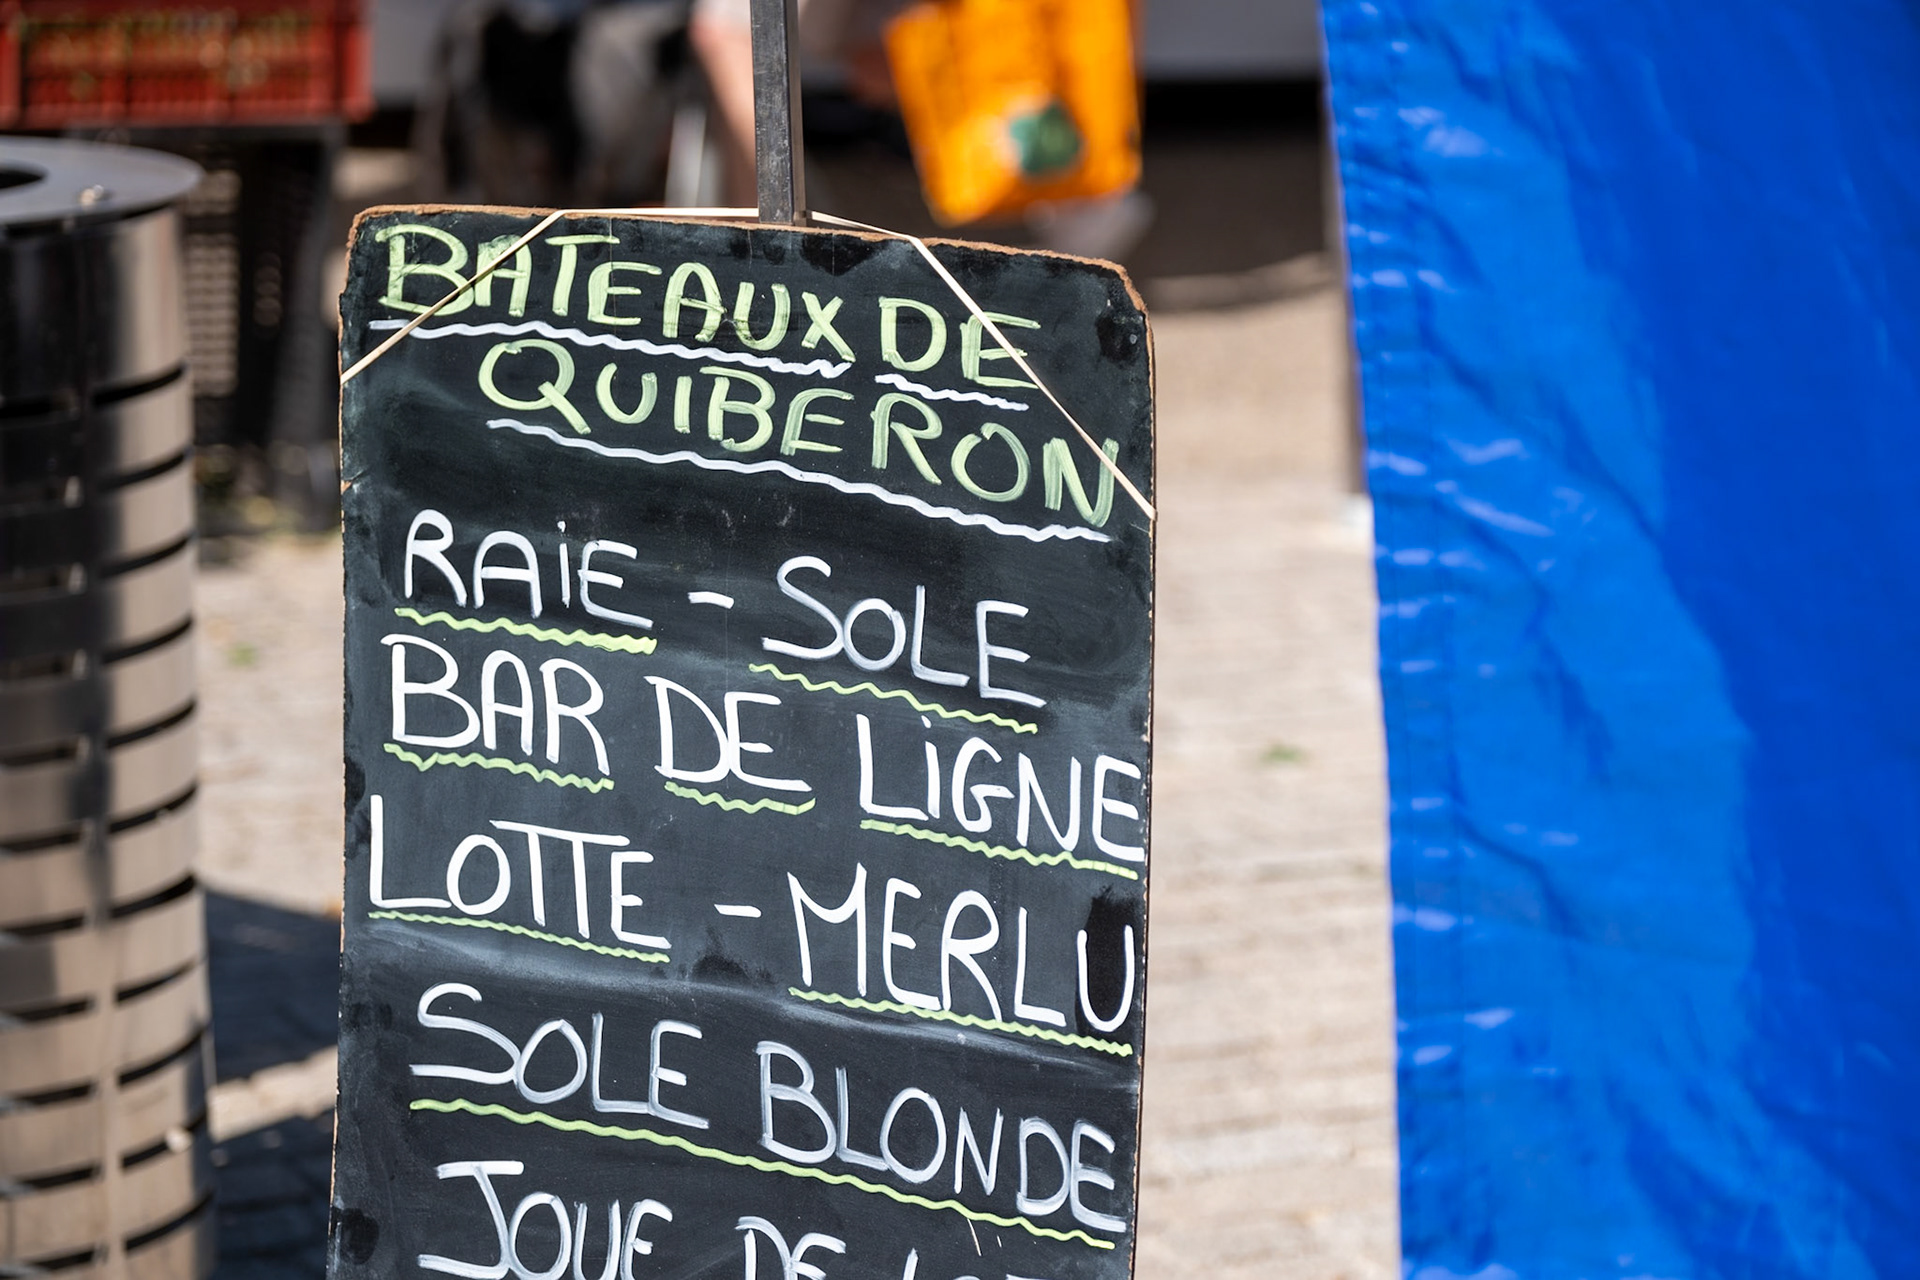 BATEAUX DE
QUIBERON
RAiE - SOLE
BAR DE LiGNE
LOTTE - MERLU
SOLE BLONDE
JOUE DE